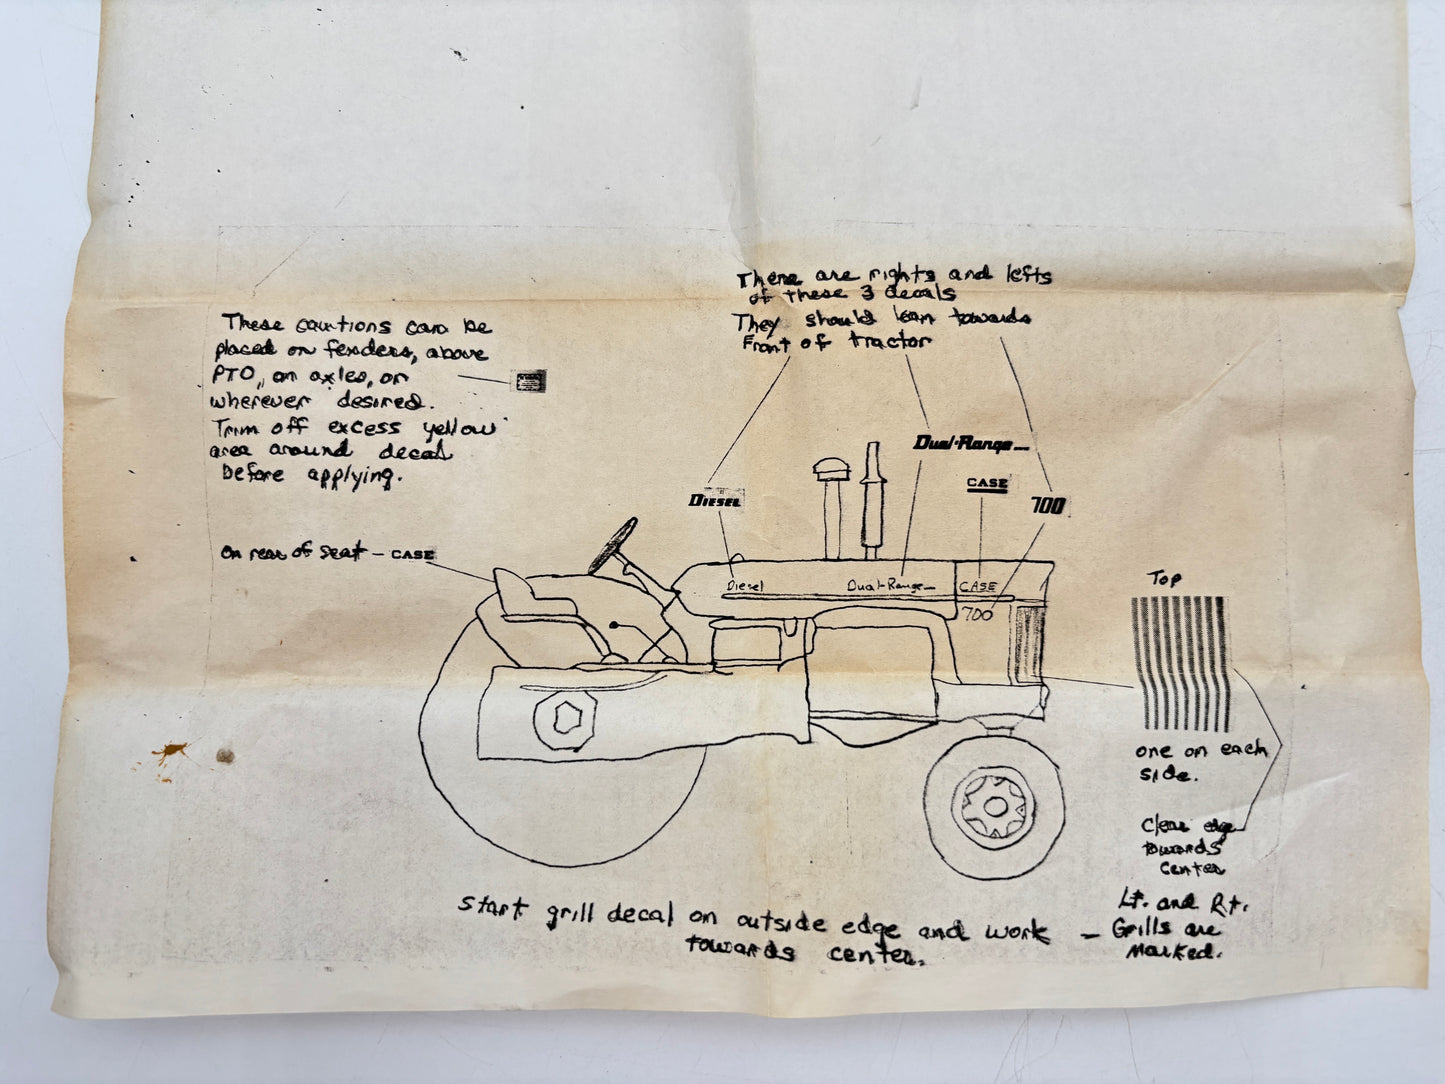 There are rights and lefts
of these 3 decals
They should lean towards
Front of tractor
These cautions can be
placed on fenders, above
PTO, on axles, or
wherever desired.
Trim off excess yellow
area around decal
before applying.
On rear of seat - CASE
Diesel
Dual-Range
CASE
700
Diesel
Dual-Range
CASE
700
Top
one on each
side.
Clear edge
towards
center
Lt. and Rt.
Grills are
marked.
start grill decal on outside edge and work -
towards center.